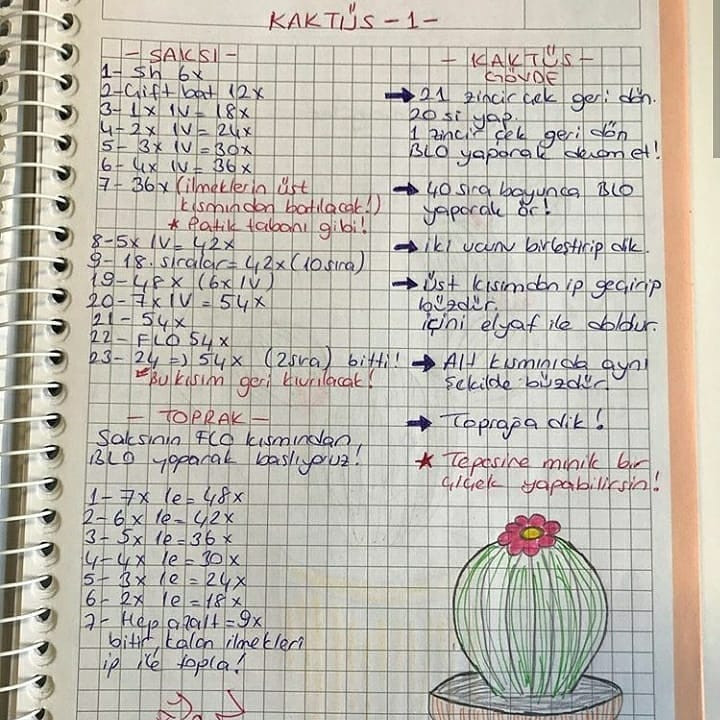 KAKTÜS - 1 -
- SAKSI -
1- Sh 6x
2- Çift bat 12x
3- 1x IV = 18x
4- 2x IV = 24x
5- 3x IV = 30x
6- 4x IV = 36x
7- 36x (ilmeklerin üst
kısmından batılacak!)
* Patik tabanı gibi!
8- 5x IV = 42x
9- 18. sıralar = 42x (10 sıra)
19- 48x (6x IV)
20- 7x IV = 54x
21- 54x
22- FLO 54x
23- 24 => 54x (2 sıra) bitti!
* Bu kısım geri kıvrılacak!
- TOPRAK -
Saksının FLO kısmından,
BLO yaparak başlıyoruz!
1- 7x le = 48x
2- 6x le = 42x
3- 5x le = 36x
4- 4x le = 30x
5- 3x le = 24x
6- 2x le = 18x
7- Hep azalt = 9x
bitir, kalan ilmekleri
ip ile topla!
- KAKTÜS -
GÖVDE
→ 21 zincir çek geri dön.
20 si yap.
1 zincir çek geri dön
BLO yaparak devam et!
→ 40 sıra boyunca BLO
yaparak ör!
→ iki ucunu birleştirip dik.
→ Üst kısımdan ip geçirip
büzdür.
içini elyaf ile doldur.
→ Alt kısmınıda aynı
şekilde büzdür.
→ Toprağa dik!
* Tepesine minik bir
çiçek yapabilirsin!